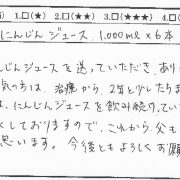 1.□(★) 2.□(★★) 3.□(★★★) 4.□(
にんじんジュース 1,000ml×6本
んじんジュースを送っていただき、あり
気づきは、治療から、2年と少したちま
は、にんじんジュースを飲み続けてい
くしておりますので、これから、父も
思います。今後ともよろしくお願